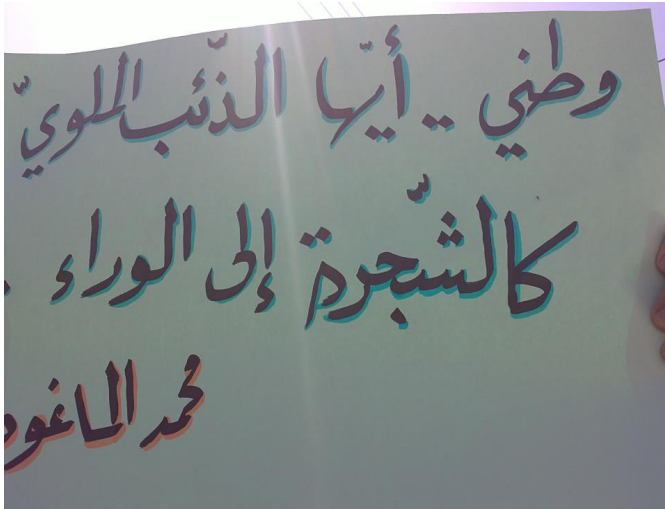 وطني .. أيّها الذّئب الملويّ
كالشّجرة إلى الوراء .
محمد الماغو